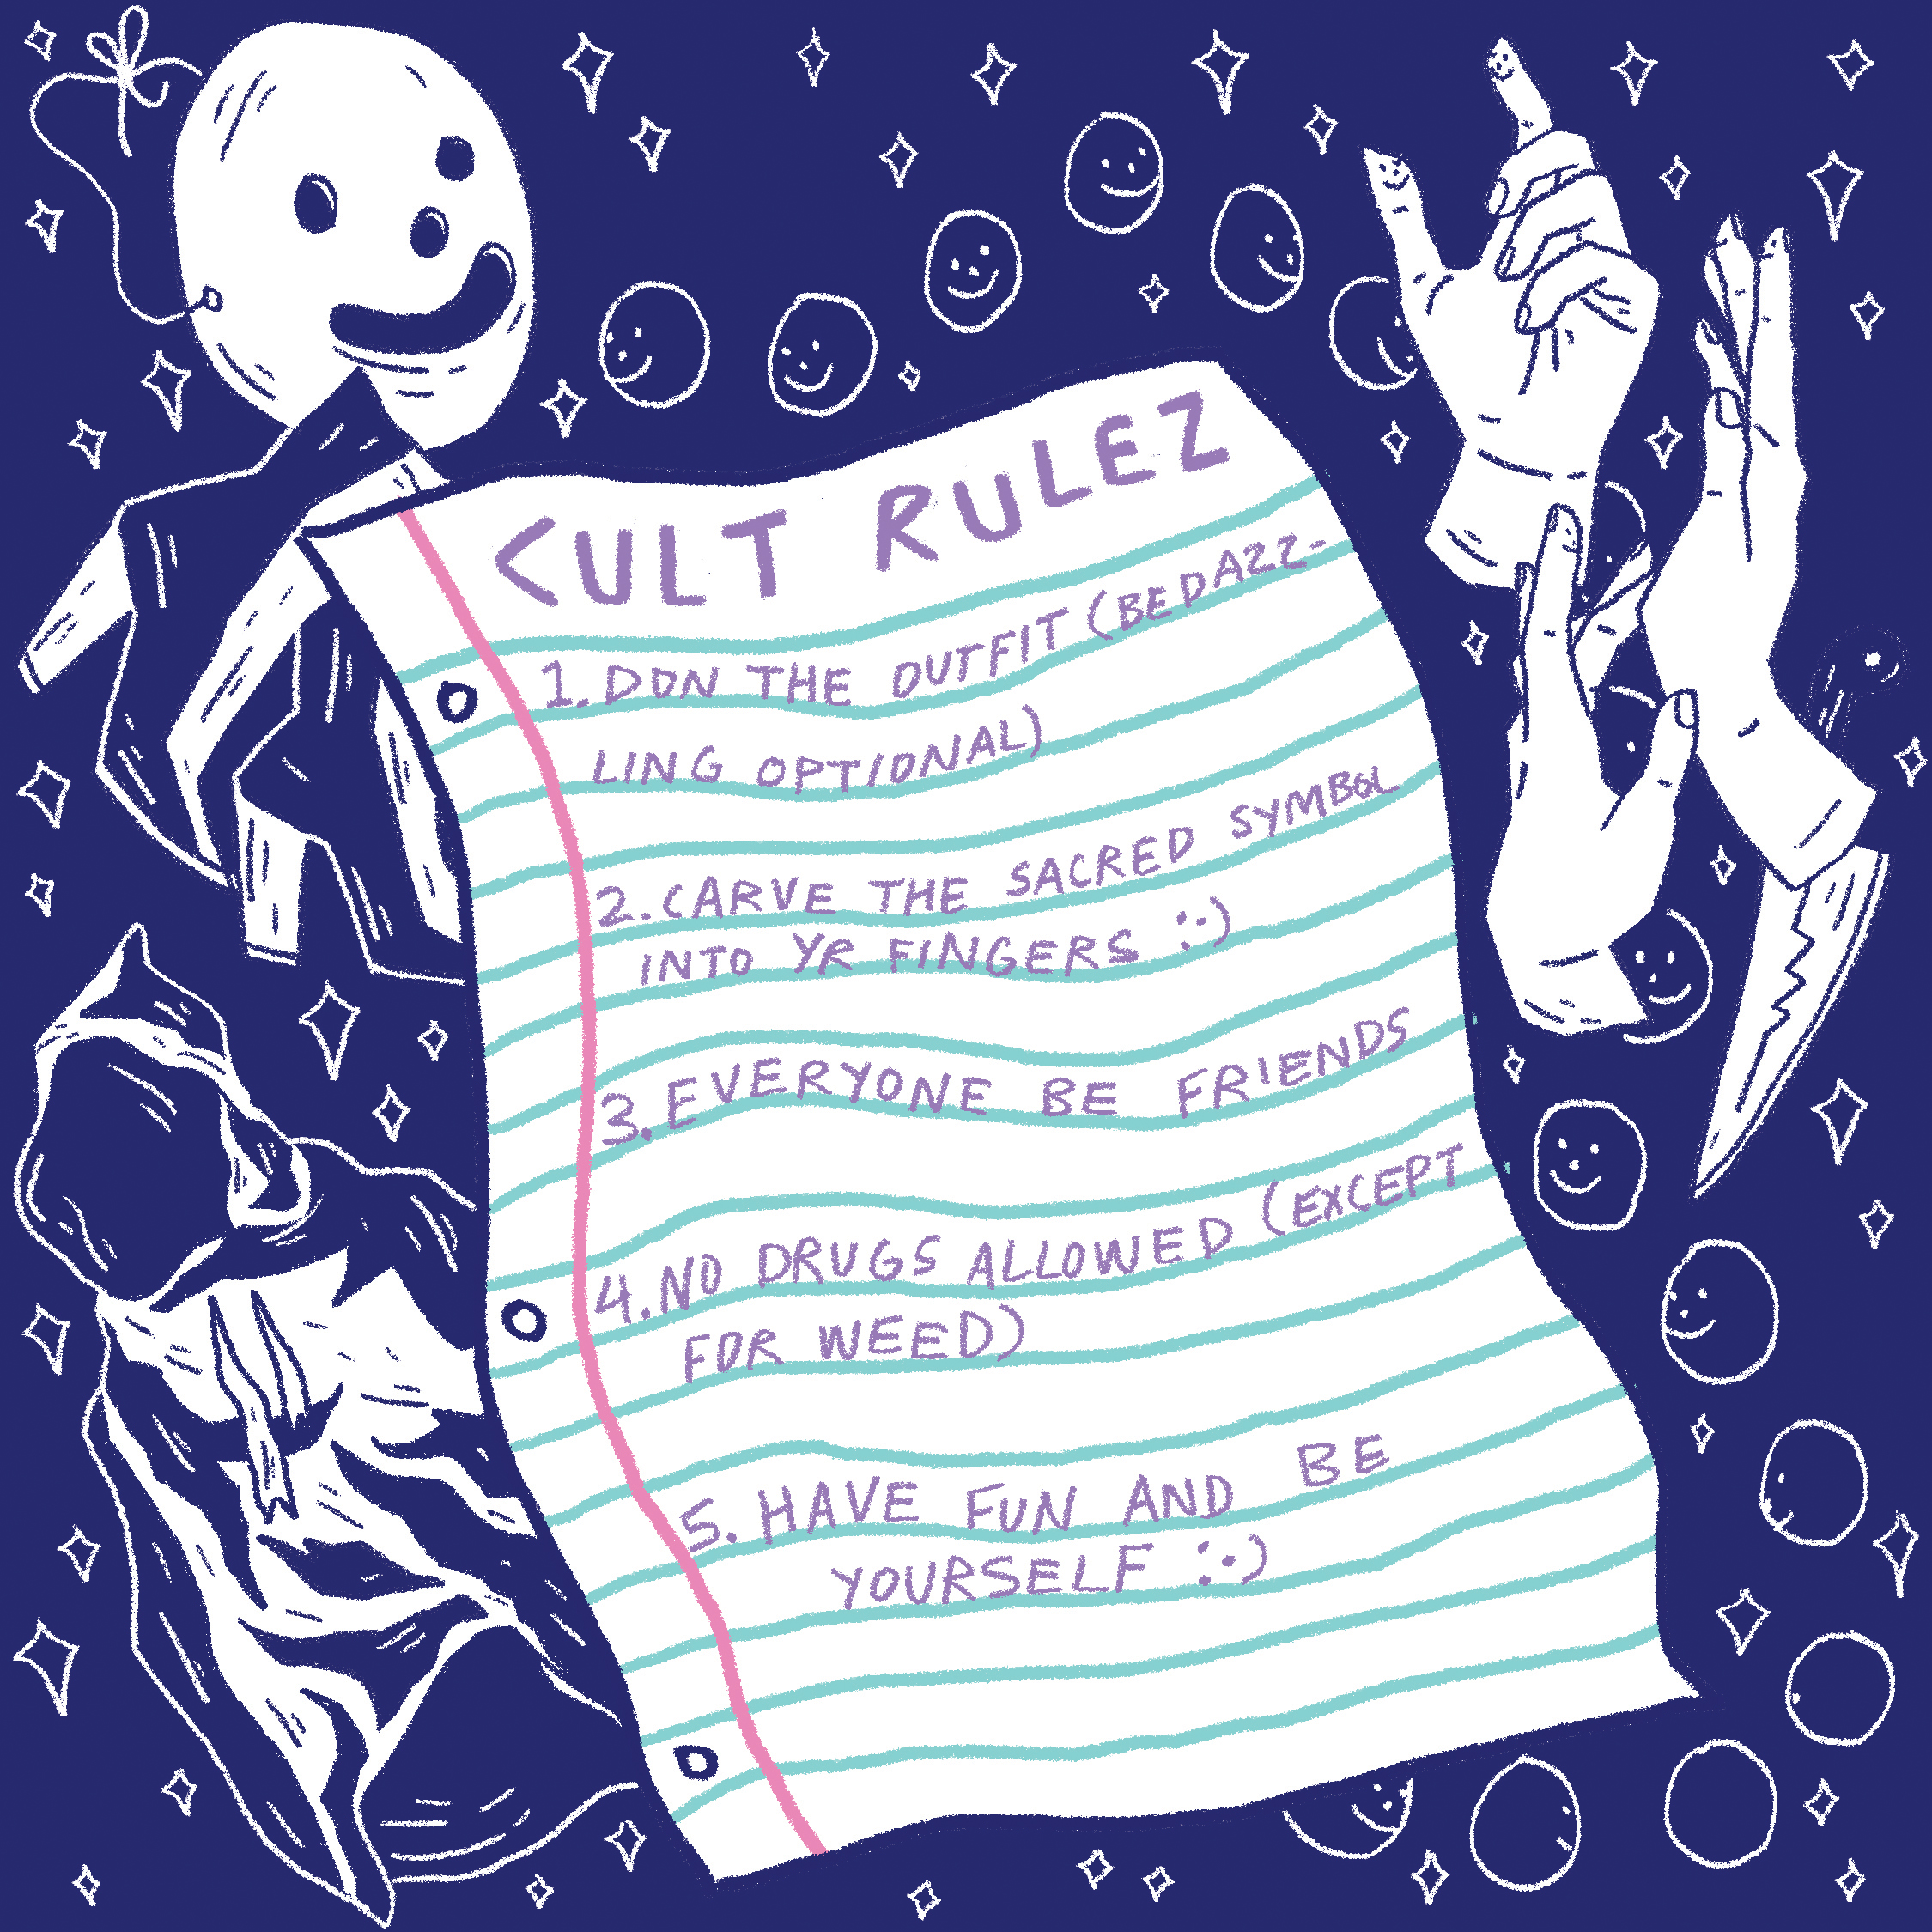 CULT RULEZ
1. DON THE OUTFIT (BEDAZZ-
LING OPTIONAL)
2. CARVE THE SACRED SYMBOL
INTO YR FINGERS :·)
3. EVERYONE BE FRIENDS
4. NO DRUGS ALLOWED (EXCEPT
FOR WEED)
5. HAVE FUN AND BE
YOURSELF :·)